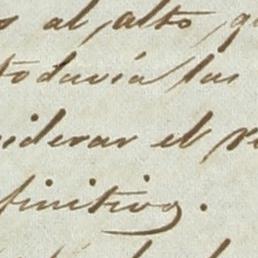 al alto,
todavía las
siderar el
finitivo.